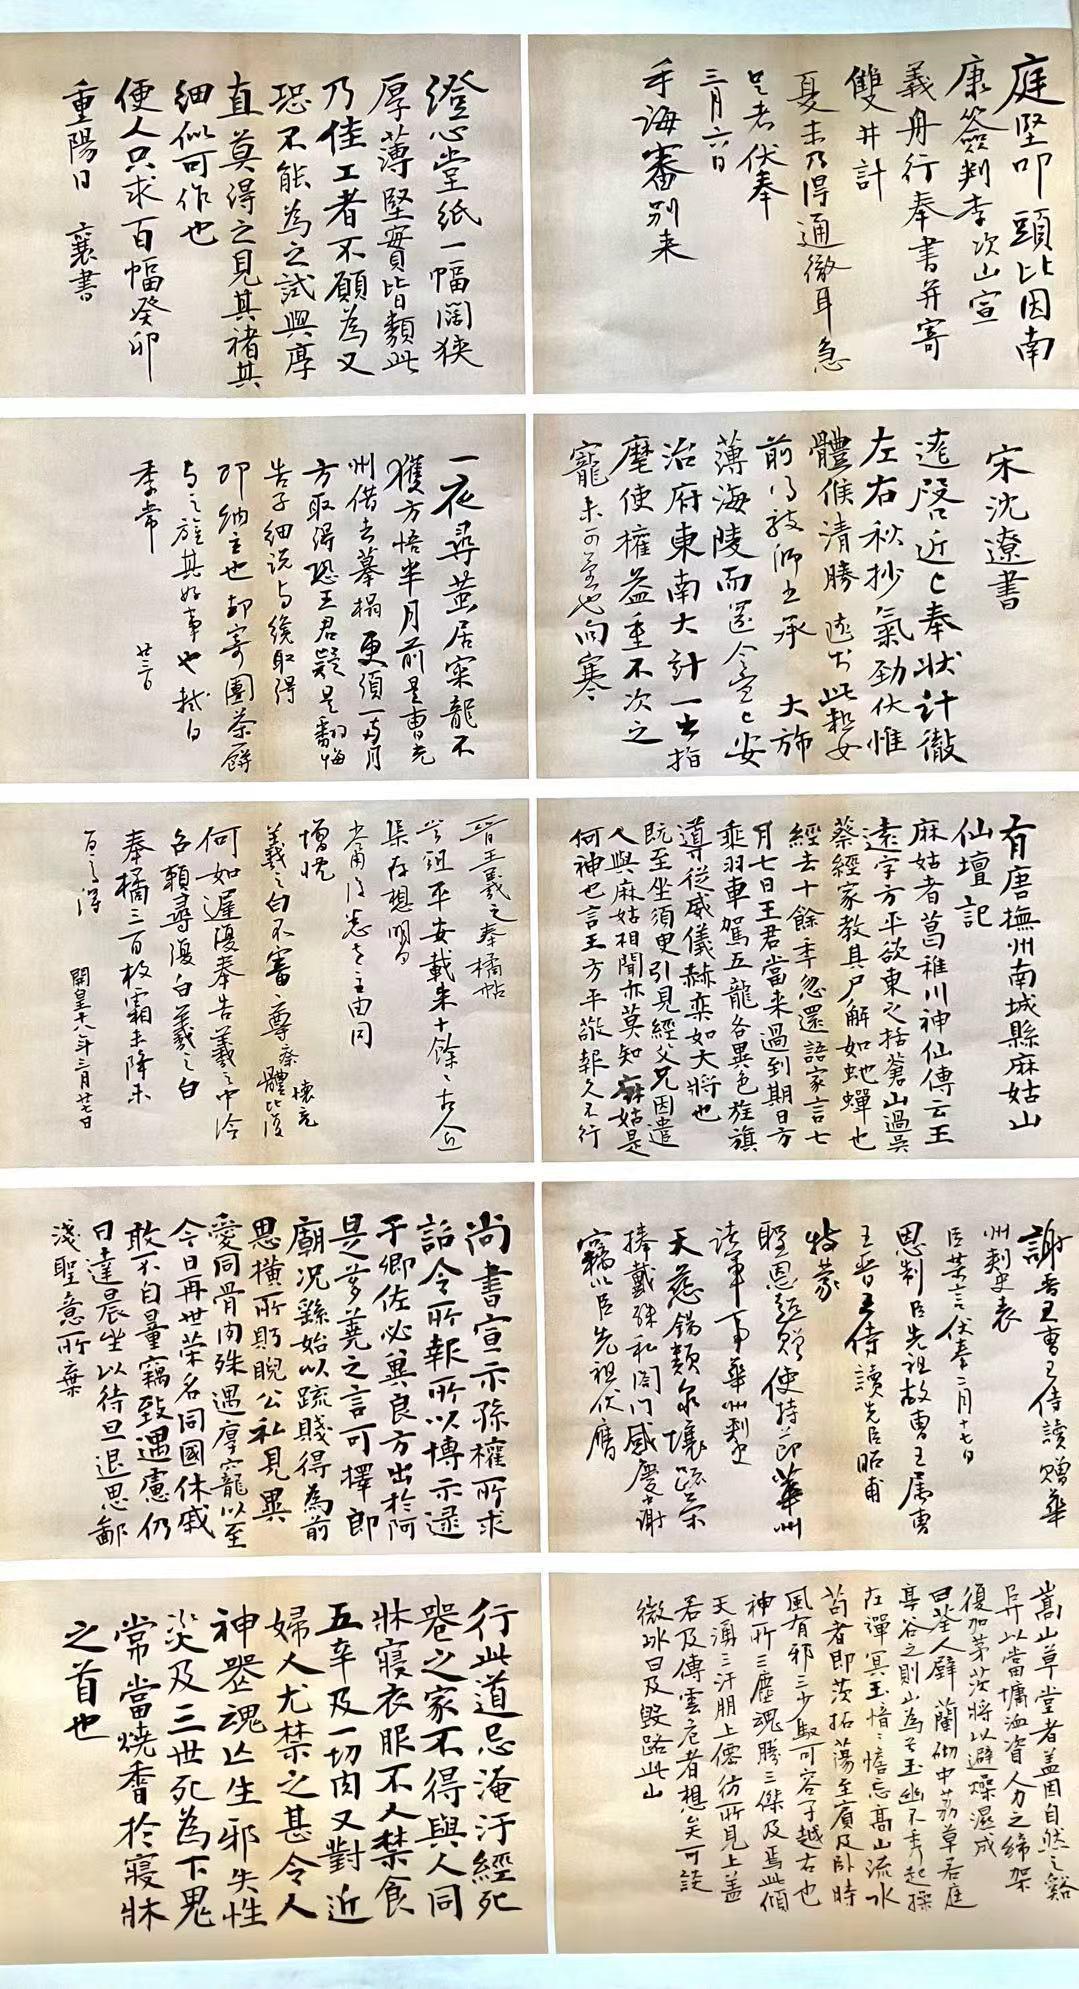 庭堅叩頭比因南
康簽判李次山宣
義舟行奉書并寄
雙井計
夏末乃得通徹耳急
足者伏奉
三月六日
手誨審別来
澄心堂紙一幅闊狹
厚薄堅實皆類此
乃佳工者不願為又
恐不能為之試與厚
直莫得之見其楮其
細似可作也
便人只求百幅癸卯
重陽日 襄書
宋沈遼書
遼啓近已奉狀計徹
左右秋抄氣劲伏惟
體候清勝
大旆
薄海陵而還今已安
治府東南大計一出指
麾使權益重不次之
寵未可量也向寒
一夜尋黃居寀龍不
獲方悟半月前是曹光
州借去摹榻更須一兩月
方取得恐王君疑是翻悔
告子細説与纔取得
即納去也却寄團茶餅
与之旌其好事也軾白
季常 廿三日
有唐撫州南城縣麻姑山
仙壇記
麻姑者葛稚川神仙傳云王
遠字方平欲東之括蒼山過吳
蔡經家教其尸解如虵蟬也
經去十餘年忽還語家言七
月七日王君當来過到期日方
平乘羽車駕五龍各異色旌旗
導從威儀赫奕如大將也
既至坐須臾引見經父兄因遣
人與麻姑相聞亦莫知麻姑是
何神也言王方平敬報久不行
晉王羲之奉橘帖
平安載来十餘
集存想明日
當復悉来無由同
增慨
羲之白不審尊體比復
何如遲復奉告羲之中冷
無賴尋復白羲之白
奉橘三百枚霜未降未
可多得 開皇十八年三月廿七日
謝晉王曹王侍讀贈華
州刺史表
臣某言伏奉二月十七日
恩制臣先祖故曹王属曹
王晉王侍讀先臣昭甫
特蒙
聖恩追贈使持節華州
諸軍事華州刺史
天慈錫類泉壤疏荣
捧戴殊私闔門感慶謝
竊以臣先祖伏膺
尚書宣示孫權所求
詔令所報所以博示逮
于卿佐必冀良方出於阿
是芻蕘之言可擇郎
廟况繇始以疏賤得為前
恩橫所眄睨公私見異
愛同骨肉殊遇厚寵以至
今日再世荣名同國休戚
敢不自量竊致遇慮仍
日達晨坐以待旦退思鄙
淺聖意所棄
嵩山草堂者盖因自然之谿
異以當墉洫資人力之締架
復加茅茨將以避燥濕成
微冰日及毀路此山
行此道忌淹汙經死
喪之家不得與人同
牀寢衣服不人禁食
五辛及一切肉又對近
婦人尤禁之甚令人
神器魂亡生邪失性
災及三世死為下鬼
常當燒香於寢牀
之首也